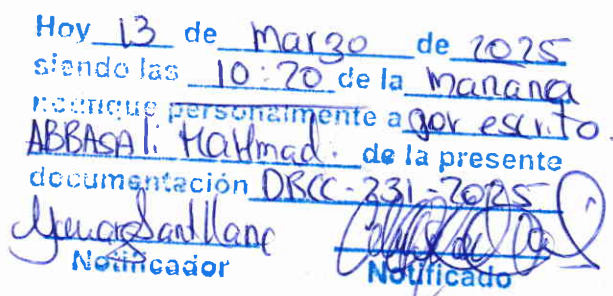 Hoy 13 de marzo de 2025
siendo las 10:20 de la manana
notifique personalmente a por escrito.
ABBASALi Mahmad. de la presente
documentación DRCC-231-2025
Notificador Notificado